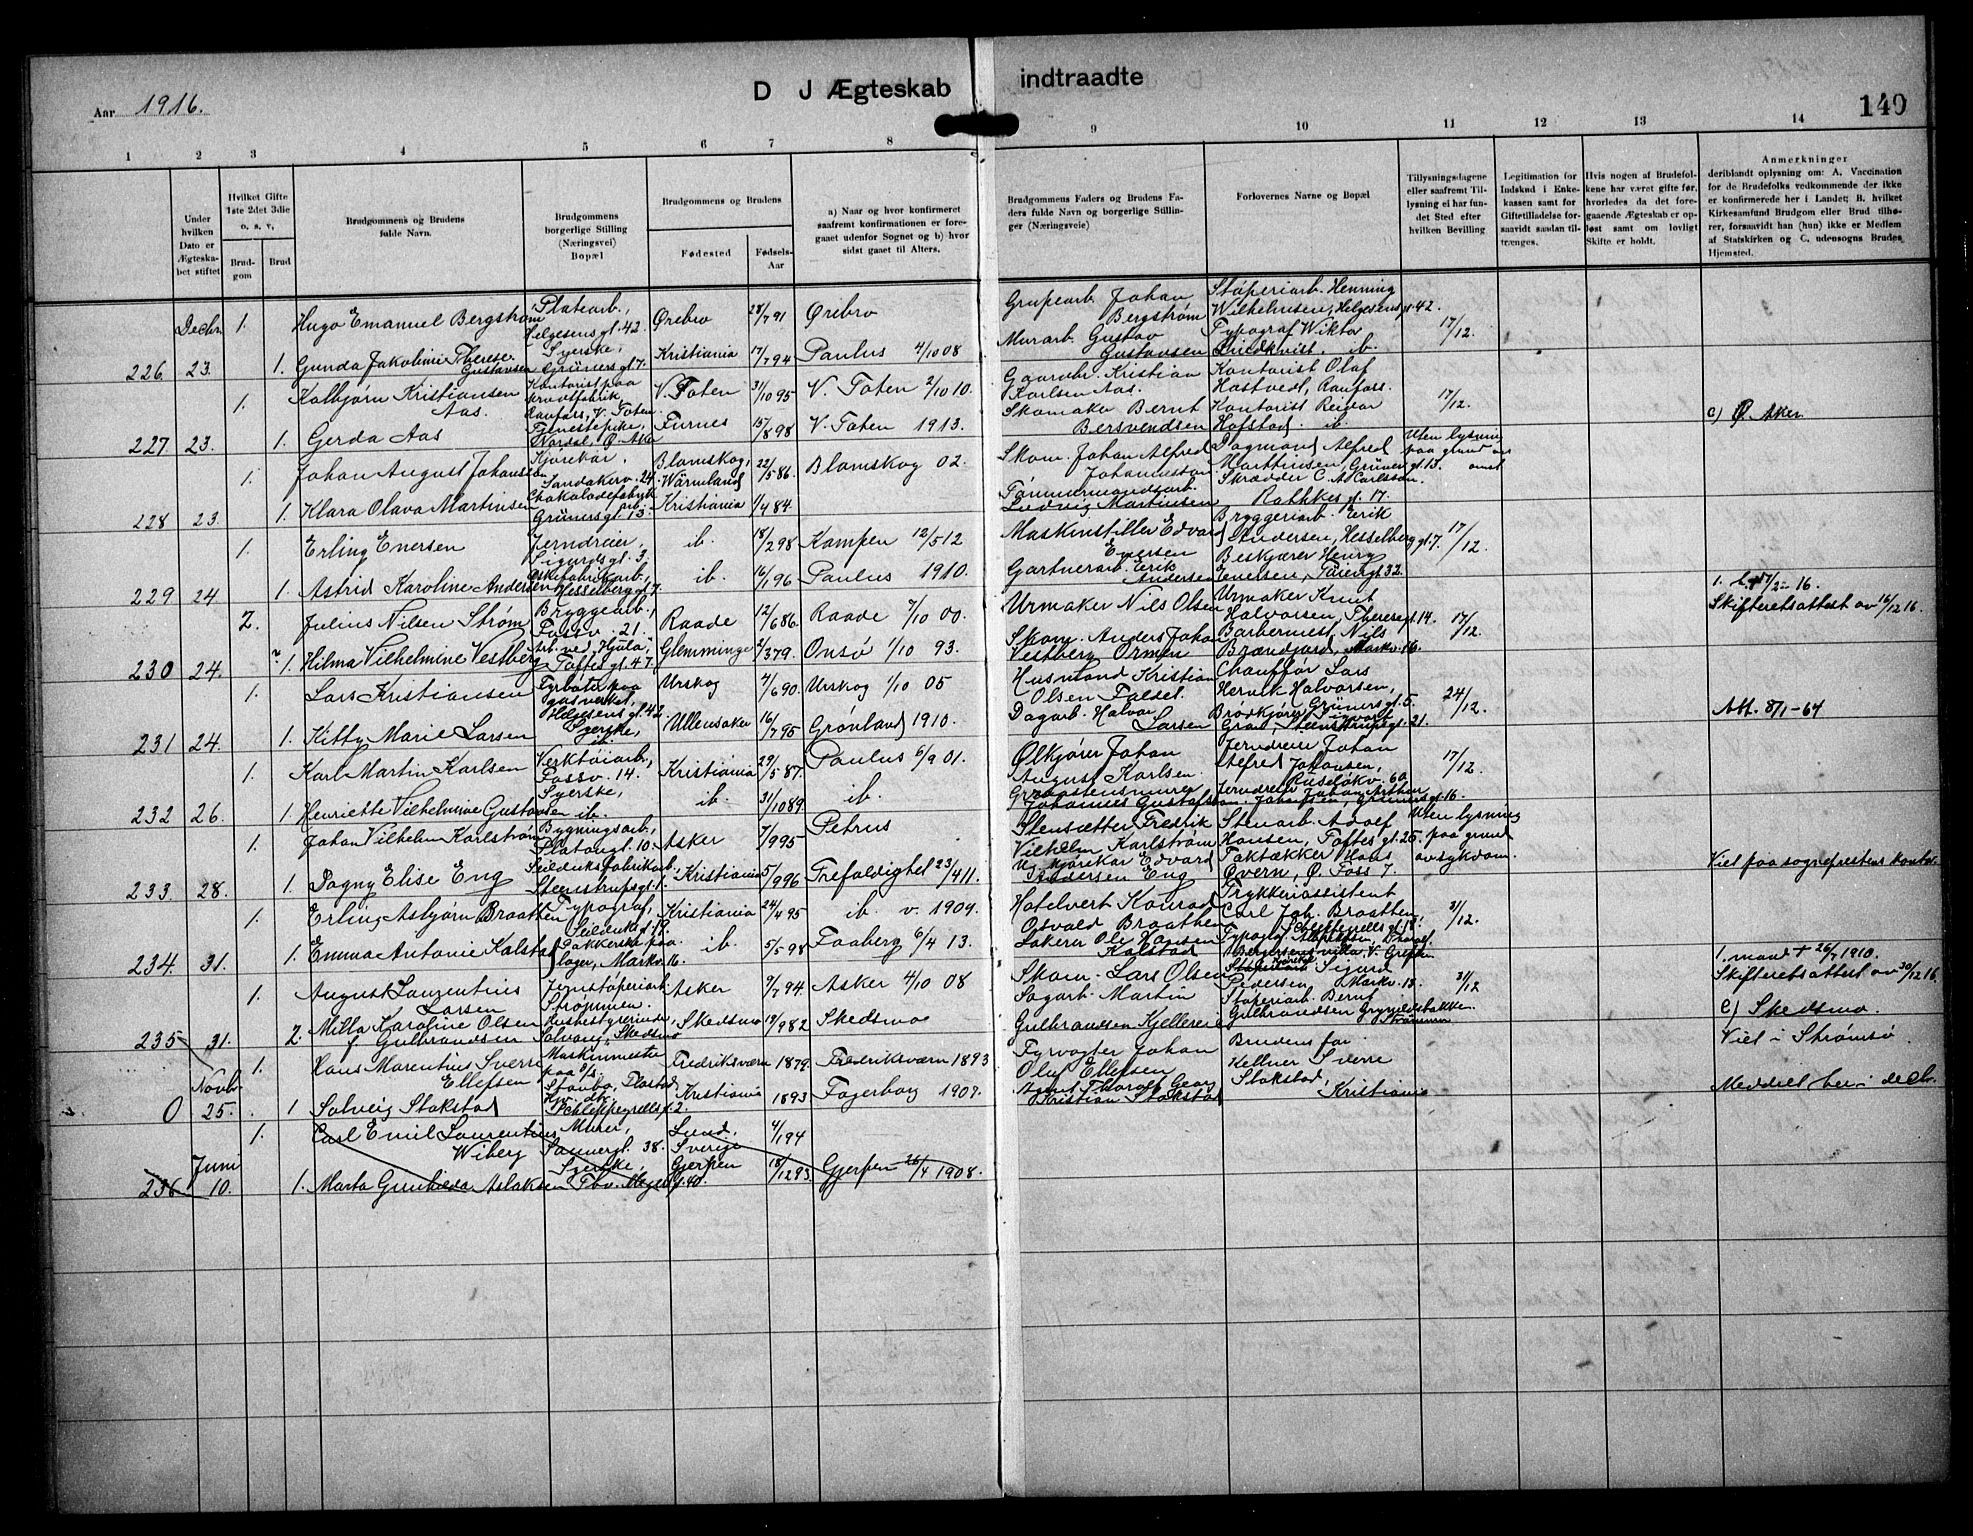 Aar 1916.
D J Ægteskab indtraadte
140
1 2 3 4 5 6 7 8 9 10 11 12 13 14
Under hvilken Dato er Ægteskabet stiftet
Hvilket Gifte 1ste 2det 3die o. s. v.
Brudgom
Brud
Brudgommens og Brudens fulde Navn.
Brudgommens borgerlige Stilling (Næringsvei) Bopæl
Brudgommens og Brudens
Fødested
Fødsels-Aar
a) Naar og hvor konfirmeret saafremt konfirmationen er foregaaet udenfor Sognet og b) hvor sidst gaaet til Alters.
Brudgommens Faders og Brudens Faders fulde Navn og borgerlige Stillinger (Næringsveie)
Forlovernes Navne og Bopæl
Tillysningsdagene eller saafremt Tillysning ei har fundet Sted efter hvilken Bevilling
Legitimation for Indskud i Enkekassen samt for Giftetilladelse forsaavidt saadan tiltrænges.
Hvis nogen af Brudefolkene har været gifte før, hvorledes da det foregaaende Ægteskab er opløst samt om lovligt Skifte er holdt.
Anmerkninger deriblandt oplysning om: A. Vaccination for de Brudefolks vedkommende der ikke er konfirmerede her i Landet; B. hvilket Kirkesamfund Brudgom eller Brud tilhører, forsaavidt han (hun) ikke er Medlem af Statskirken og C. udensogns Brudes Hjemsted.
Decbr. 1. Hugo Emanuel Bergstrøm Platearb., Helgesens gt. 42. Ørebro 28/7 91 Ørebro Grupearb. Johan Bergstrøm Støperiarb. Henning Wilhelmsen, Helgesens gt. 42. 17/12.
226. 23. 1. Gunda Jakobine Therese Gustavsen Syerske, Grüners gt. 7. Kristiania 17/7 94 Paulus 4/10 08 Murarb. Gustav Gustavsen Typograf Wiktor Lindkvist. ib.
1. Kolbjørn Kristiansen Aas. Kontorist paa krudtfabrik, Raufoss, V. Toten V. Toten 31/10 95 V. Toten 2/10 10. Gaardbr. Kristian Karlsen Aas. Kontorist Olaf Hastvedt, Raufoss. 17/12.
227 23. 1. Gerda Aas Tjenestepike, Nordal, Ø. Aker Furnes 15/8 98 V. Toten 1913. Skomaker Bernt Bersvendsen Kontorist Reidar Hofstad. ib. c) Ø. Aker
1. Johan August Johansson Kjørekar. Sandakerv. 24. Blomskog, Wärmland 22/5 86. Blomskog 02. Skom. Johan Alfred Johannesson Dagmand Alfred Martinsen, Grüners gt. 13. Uten lysning paa grund av omst.
228 23. 1. Klara Olava Martinsen Chokoladefabrik arb. Grüners gt. 13. Kristiania 1/4 84. Tømmermandsarb. Ludvig Martinsen Skrædder C. A. Carlsson. Rathkes gt. 17.
1. Erling Enersen Jerndreier, Sigurds gt. 3. ib. 18/2 98 Kampen 12/5 12 Maskinstiller Edvard Enersen Bryggeriarb. Erik Andersen, Hesselberg gt. 7. 17/12.
229 24. 1. Astrid Karoline Andersen Eskefabrikarb., Hesselberg gt. 7. ib. 16/1 96 Paulus 1910. Gartnerarb. Erik Andersen Beskjærer Henry Enersen, Tøiengt. 32.
2. Julius Nilsen Strøm Bryggearb., Fossv. 21. Raade 12/6 86. Raade 7/10 00. Urmaker Nils Olsen Urmaker Knut Halvorsen, Theresegt. 14. 17/12. 1. h. + 17/2 16. Skifteretsattest av 16/12 16.
230 24. 1. Hilma Vilhelmine Vestberg Arb. ved Hjula, Toftes gt. 47. Glemminge 2/3 79. Onsø 1/10 93. Skom. Anders Johan Vestberg Ormen Barbermest. Nils Brændjord, Markv. 16.
1. Lars Kristiansen Fyrbøter paa gasverket, Helgesens gt. 42. Urskog 4/6 90. Urskog 1/10 05 Husmand Kristian Olsen Faldet. Chauffør Lars Henrik Halvorsen, Grüners gt. 5. 24/12. Att. 8/1-64
231 24. 1. Kitty Marie Larsen Syerske, ib. Ullensaker 16/7 95 Grønland 1910. Dagarb. Halvor Larsen Brødkjører Sigvart Gran, Steenstrups gt. 21.
1. Karl Martin Karlsen Verktøiarb., Fossv. 14. Kristiania 29/5 87. Paulus 6/9 01. Ølkjører Johan August Karlsen. Jerndreier Johan Alfred Johansen, Ruseløkv. 60 17/12.
232 26. 1. Henriette Vilhelmine Gustavsen Syerske, ib. ib. 31/10 89. ib. Graastensmurer Johannes Gustafsson. Jerndreier Johan Arthur Johansen, Grüners gt. 16.
1. Johan Vilhelm Karlstrøm Bygningsarb., Platous gt. 10. Asker 7/9 95 Petrus Stensætter Fredrik Vilhelm Karlstrøm Stenarb. Adolf Hansen, Toftes gt. 25. Uten lysning paa grund av sykdom.
233. 28. 1. Dagny Elise Eng Seilduksfabrikarb., Steenstrups gt. 1. Kristiania 5/9 96 Trefoldighet 23/4 11. Kjørekar Edvard Andersen Eng Taktækker Hans Øvern, Ø. Foss 7. Viet paa sogneprestens kontor.
1. Erling Asbjørn Braatten Typograf, Seilduks gt. 19. Kristiania 24/4 95 ib. v. 1909. Hotelvert Konrad Osvald Braathen Trykkeriassistent Carl Joh. Braatten, Schleppegrells gt. 18. 31/12.
234. 31. 1. Emma Antonie Kalstad Pakkerske paa lager, Markv. 16. ib. 5/5 98 Faaberg 6/4 13. Lakerer Ole Hansen Kalstad
1. August Laurentius Larsen Jernstøperiarb. Strømmen. Asker 9/7 94 Asker 4/10 08 Skom. Lars Olsen Sigurd Pedersen Markv. 18. 31/12 1. mand + 26/7 1910. Skifteretsattest av 30/12 16.
235 31. 2. Milla Karoline Olsen f. Gulbrandsen Husbestyrerinde, Solvang, Skedsmo Skedsmo 19/9 82 Skedsmo Sagarb. Martin Gulbrandsen Kjellerei Støperiarb. Bernt Gulbrandsen Strømmen c) Skedsmo
1. Hans Marentius Sverre Ellefsen Maskinmester paa s/s Fredriksværn 1879. Fredriksværn 1893 Fyrvogter Johan Olaf Ellefsen Brudens far. Viet i Strømsø.
Novbr. 0 25. 1 Solveig Stokstad Schleppegrells gt. 2. Kristiania 1893 Fagerborg 1907. Agent Thorolf Georg Kristian Stokstad Kellner Sverre Stokstad, Kristiania Meddelt her i decbr.
1. Carl Emil Laurentius Wiberg Murer, Sannergt. 38. Lund. Sverige 4/1 94
Juni 236 10. 1. Marta Gunhilda Aslaksen Syerske, Thv. Meyers gt. 40. Gjerpen 18/12 93. Gjerpen 26/4 1908.